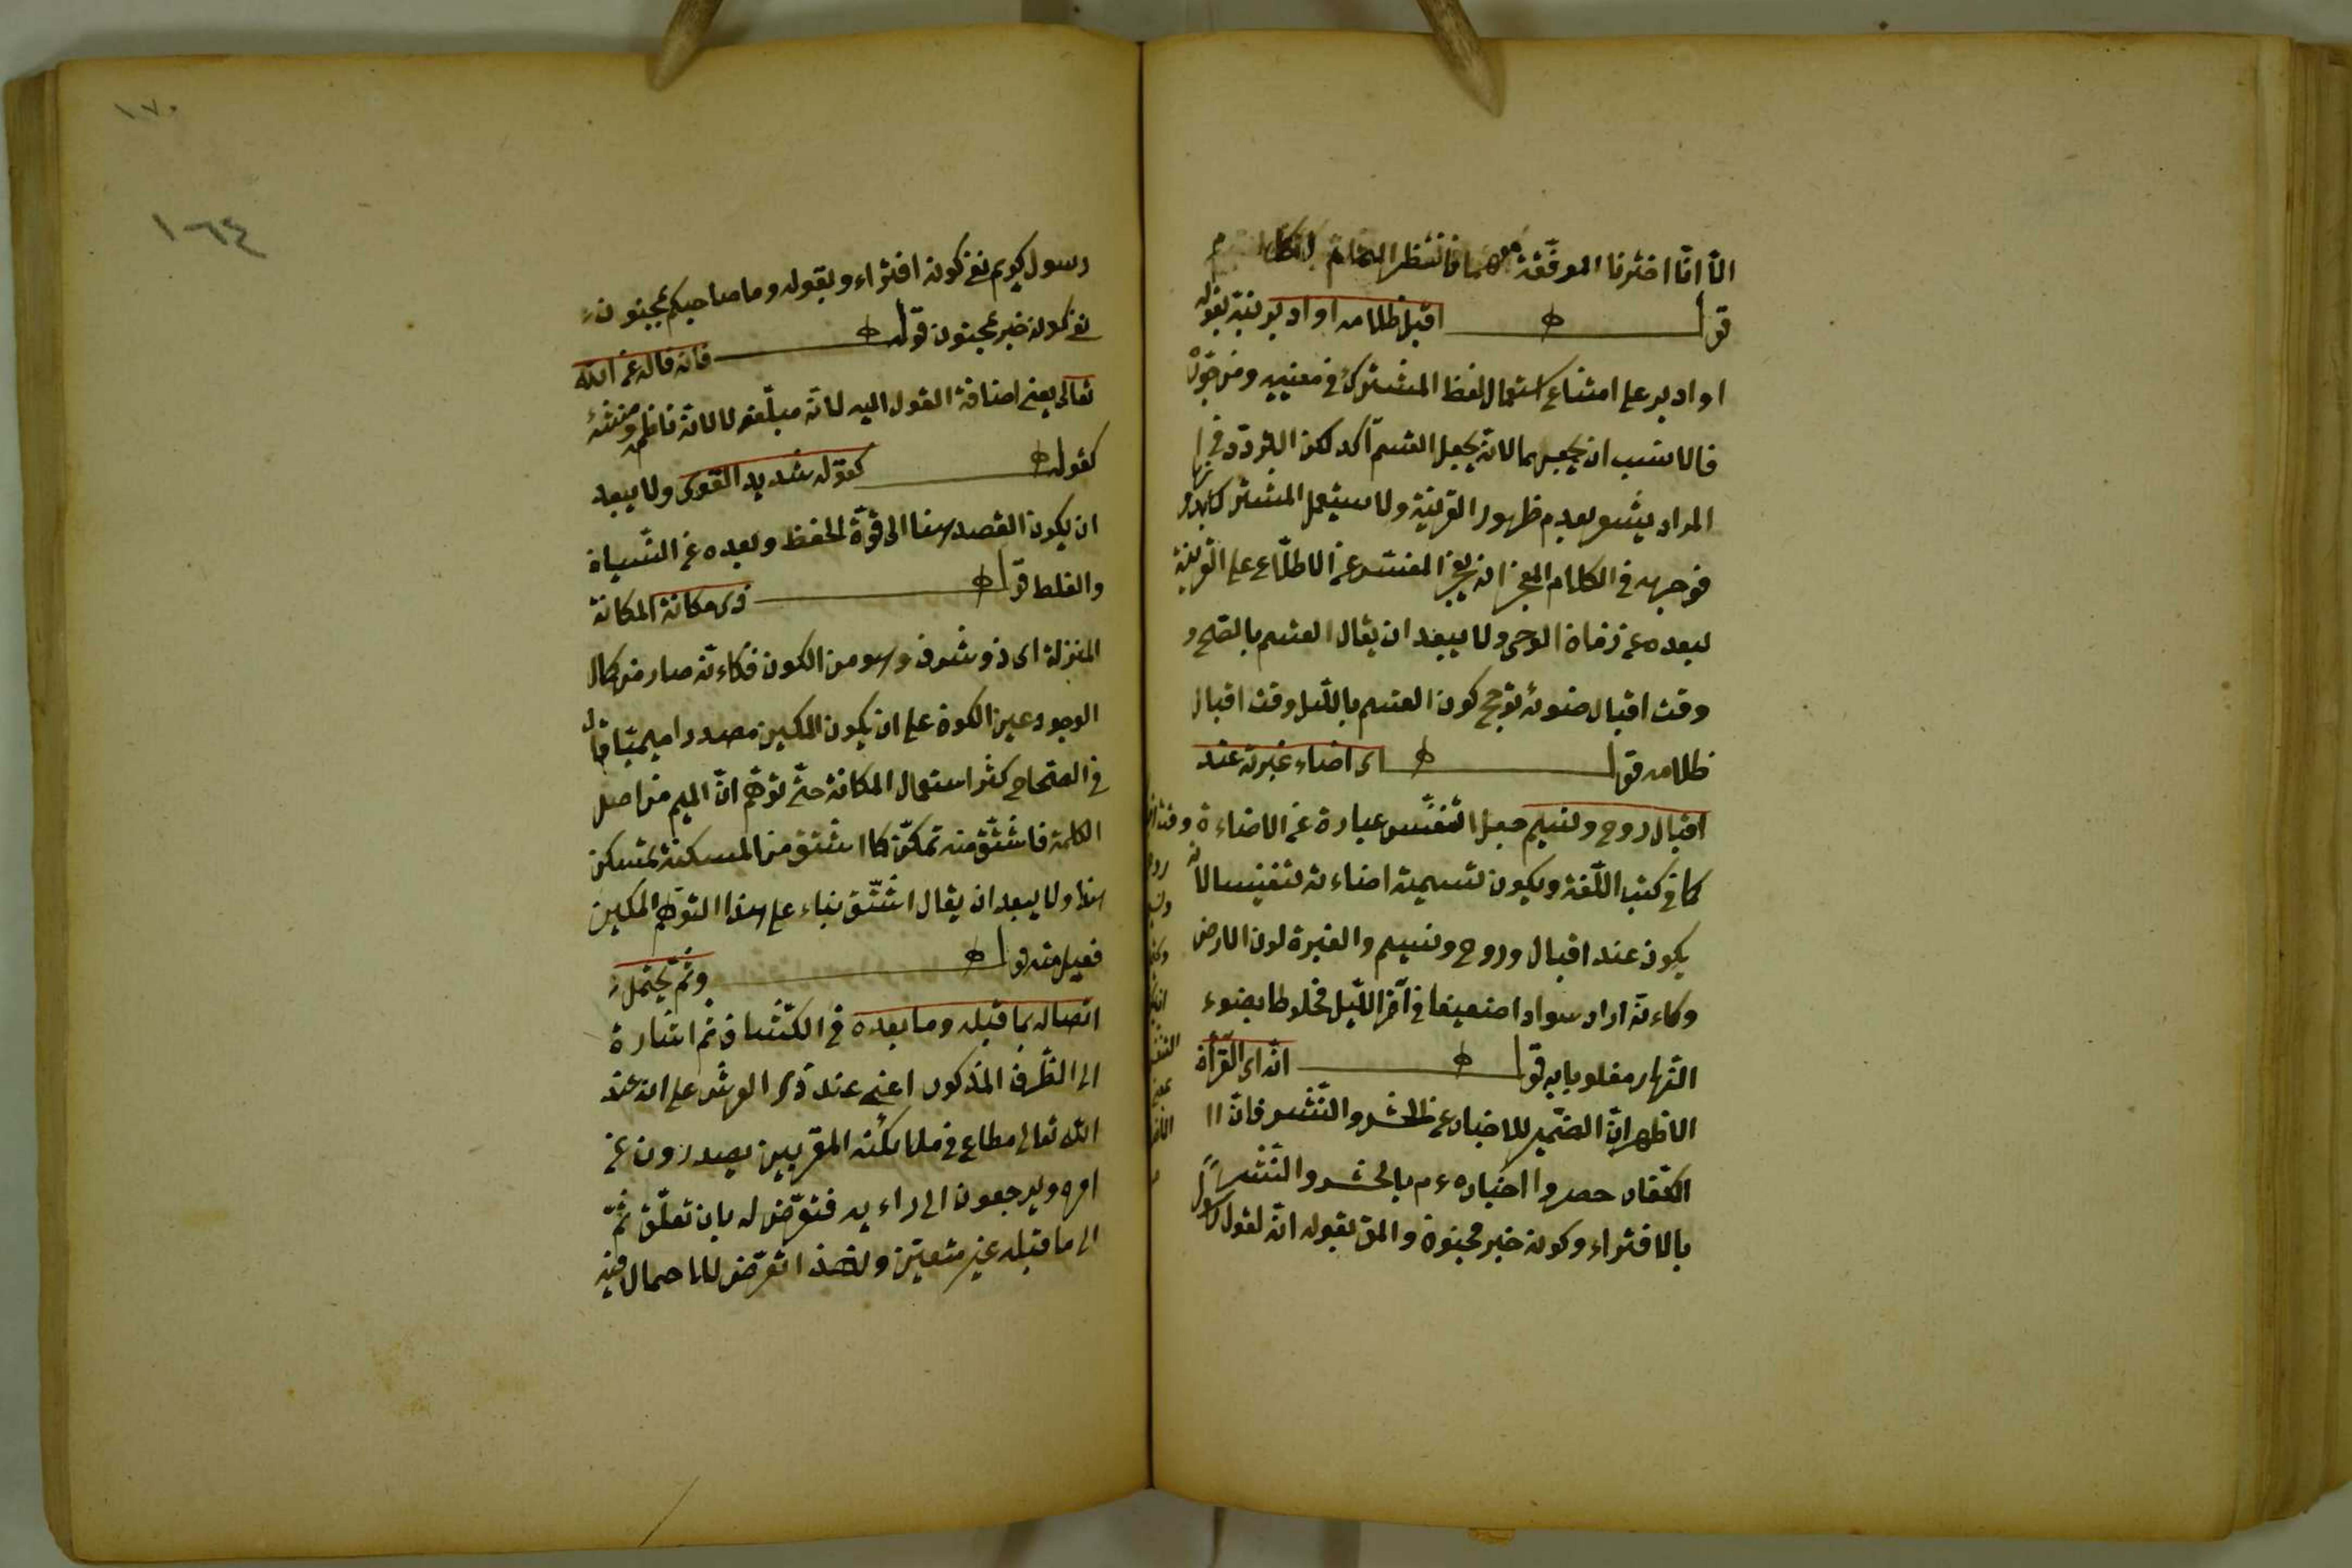 الا انا اخترنا الموقفة فانتظر التمام
قوله اقبل ظلامه او ادبر نبه بقوله
او ادبر على امتناع استعمال لفظ المشترك في معنييه ومن جوزه
فالانسب ان يجعل لهما لانه يجعل القسم آكد لكن التردد في
المراد يشعر بعدم ظهور القرينة ولا يستعمل المشترك بدونها
فوجهه في الكلام المعجز انه بعجز المفسر عن الاطلاع على القرينة
لبعده عن زمان الوحي ولا يبعد ان يقال القسم بالصبح و
وقت اقبال ضوئه ترجح كون القسم بالليل وقت اقبال
ظلامه قوله اى اضاء غبرته عند
اقبال روح ونسيم جعل التنفس عبارة عن الاضاءة
كما في كتب اللغة ويكون تسمية اضاءته تنفيسا لانه
يكون عند اقبال وروح ونسيم والغبرة لون الارض
وكأنه اراد سوادا ضعيفا في آخر الليل مخلوطا بضوء
النهار مغلوبا به قوله انه اى القرآن
الاظهر ان الضمير للاخبار عن الحشر والنشر فان
الكفار حصروا اخباره ع م بالحشر والنشر
بالافتراء وكونه خبر مجنون والحق بقوله انه لقول رسول
١٧٠
١٦٤
رسول كريم نفى كونه افتراء وبقوله وما صاحبكم بمجنون
نفى كونه خبر مجنون قوله فانه قاله عن الله
تعالى يعنى اضافة القول اليه لانه مبلغه لا لانه ناظمه ومنشئه
كقوله كقوله شديد القوى ولا يبعد
ان يكون القصد هنا الى قوة الحفظ وبعده عن النسيان
والغلط قوله ذى مكانة المكانة
المنزلة اى ذو شرف وهو من الكون فكأنه صار من كمال
الوجود عين الكون على ان يكون المكين مصدرا ميميا قال
في الصحاح كثر استعمال المكانة حتى توهم ان الميم من اصل
الكلمة فاشتق منه تمكن كما اشتق من المسكنة تمسكن
هذا ولا يبعد ان يقال اشتق بناء على هذا التوهم المكين
فعيل منه قوله وثم يحتمل
اتصاله بما قبله وما بعده في الكشاف ثم اشارة
الى الظرف المذكور اعنى عند ذى العرش على انه عند
الله تعالى مطاع في ملائكته المقربين يصدرون عن
امره ويرجعون الى رأيه فتعرض له بان تعلق ثم
الى ما قبله غير متعين ولهذا تعرض للاحتمال فيه